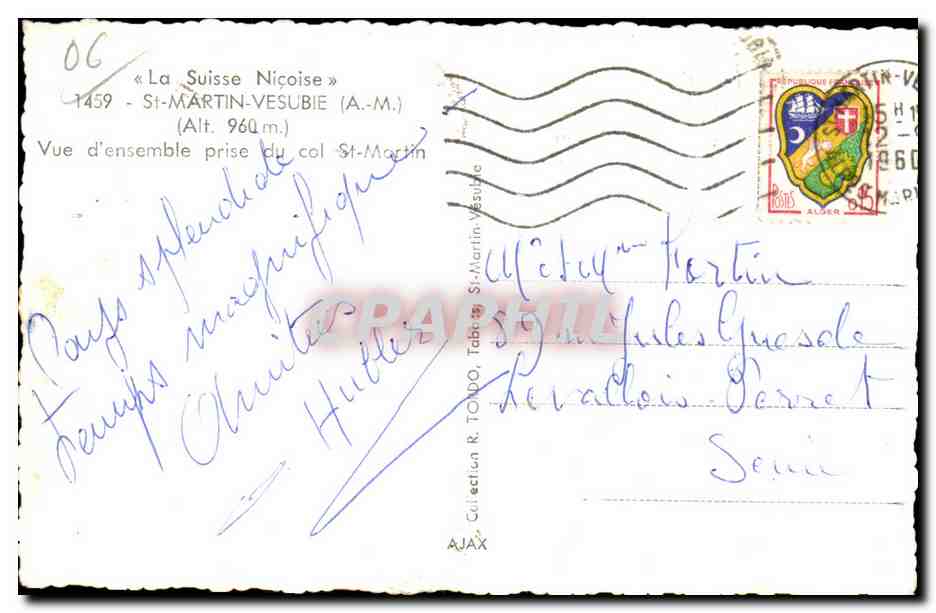 06
« La Suisse Niçoise »
1459 - St-MARTIN-VESUBIE (A.-M.)
(Alt. 960 m.)
Vue d'ensemble prise du col St-Martin
Pays splendide
temps magnifique
Amitiés
Huber
Collection R. TONDO, Tabacs, St-Martin-Vésubie
AJAX
RÉPUBLIQUE FRANÇAISE
POSTES
ALGER
0,15
1960
Mr et Mme Fortin
59 r Jules Guesde
Levallois-Perret
Seine
CPAPHIL